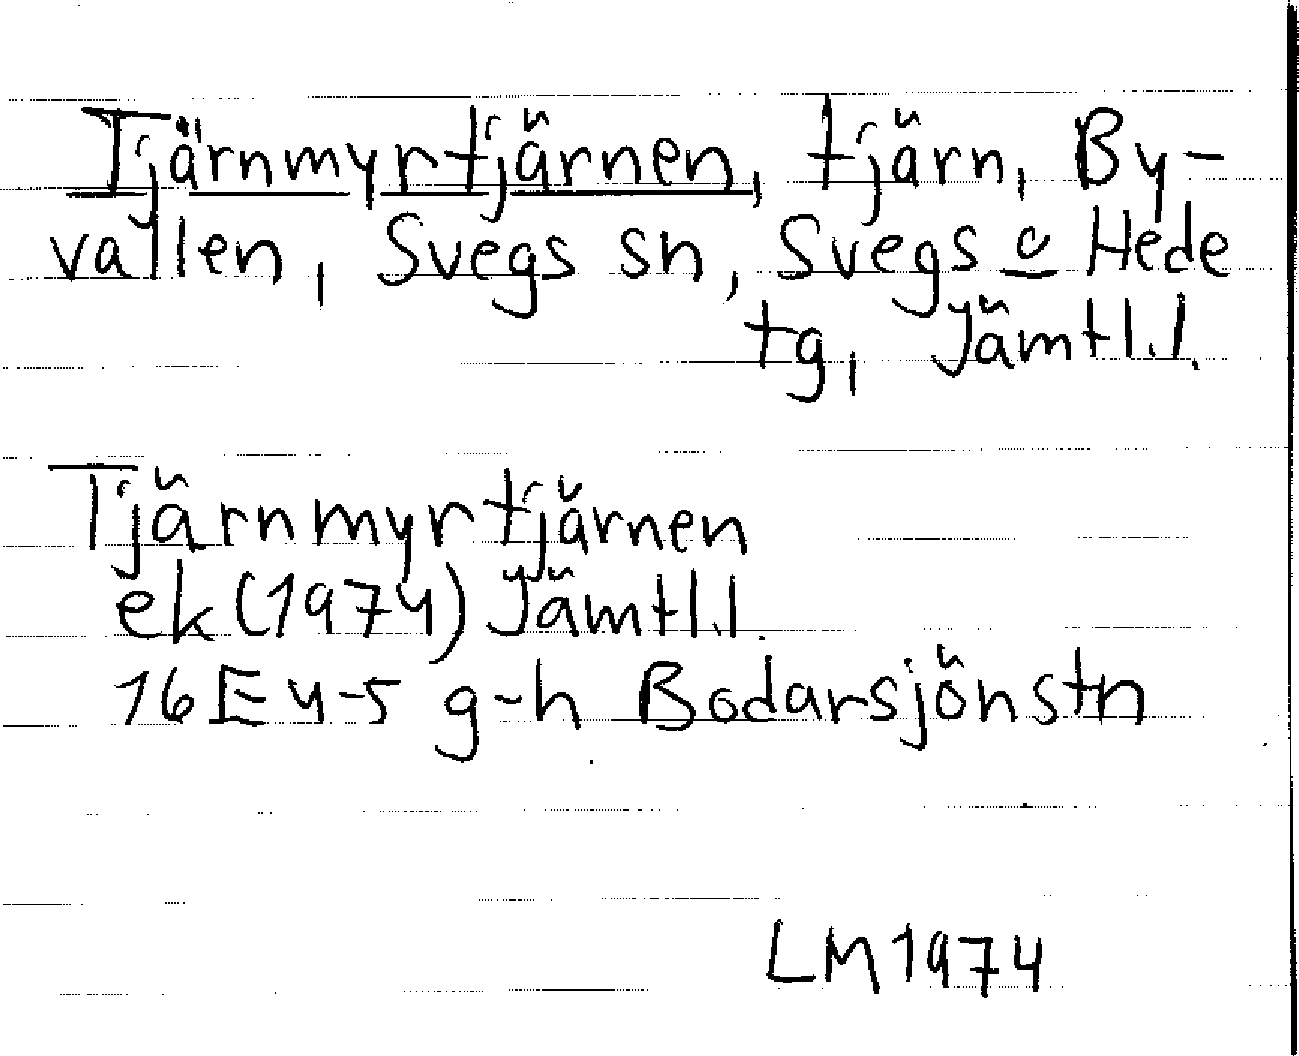 Tjärnmyrtjärnen, tjärn, By-
vallen, Svegs sn, Svegs o Hede
tg, Jämtl.l.
Tjärnmyrtjärnen
ek (1974) Jämtl.l.
16E 4-5 g-h Bodarsjönstn
LM 1974